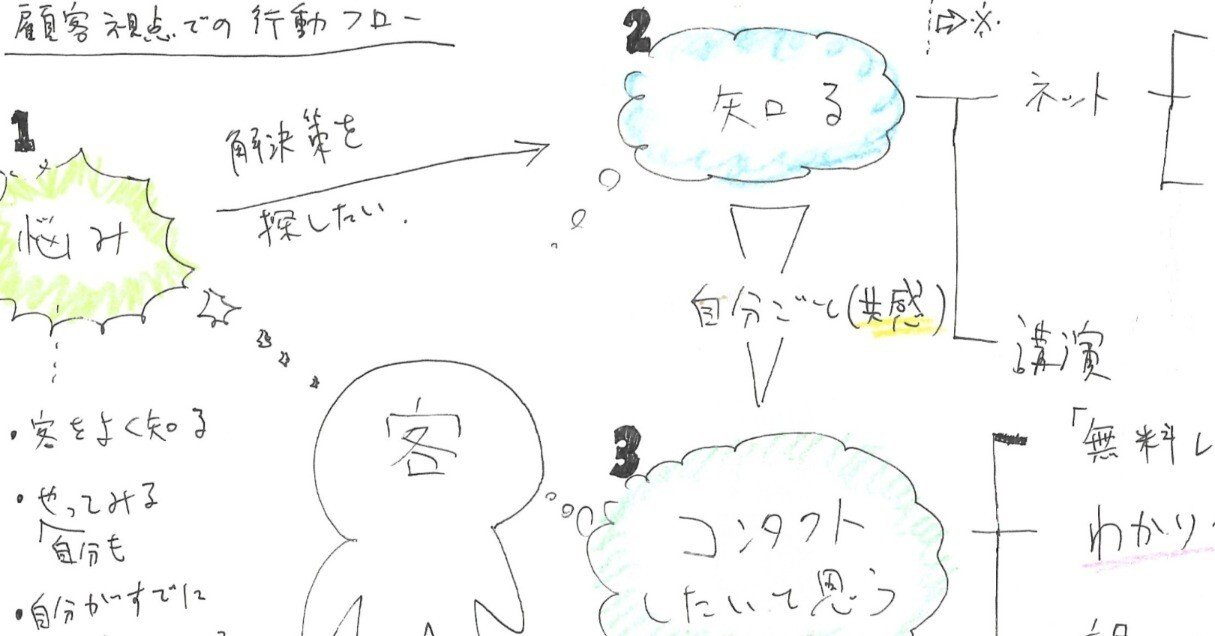 顧客視点での行動フロー
1
悩み
解決策を
探したい.
2
知る
⇨※
ネット
講演
自分ごと(共感)
3
コンタクト
したいと思う
「無料
わかり
客
・客をよく知る
・やってみる
自分も
・自分がすでに